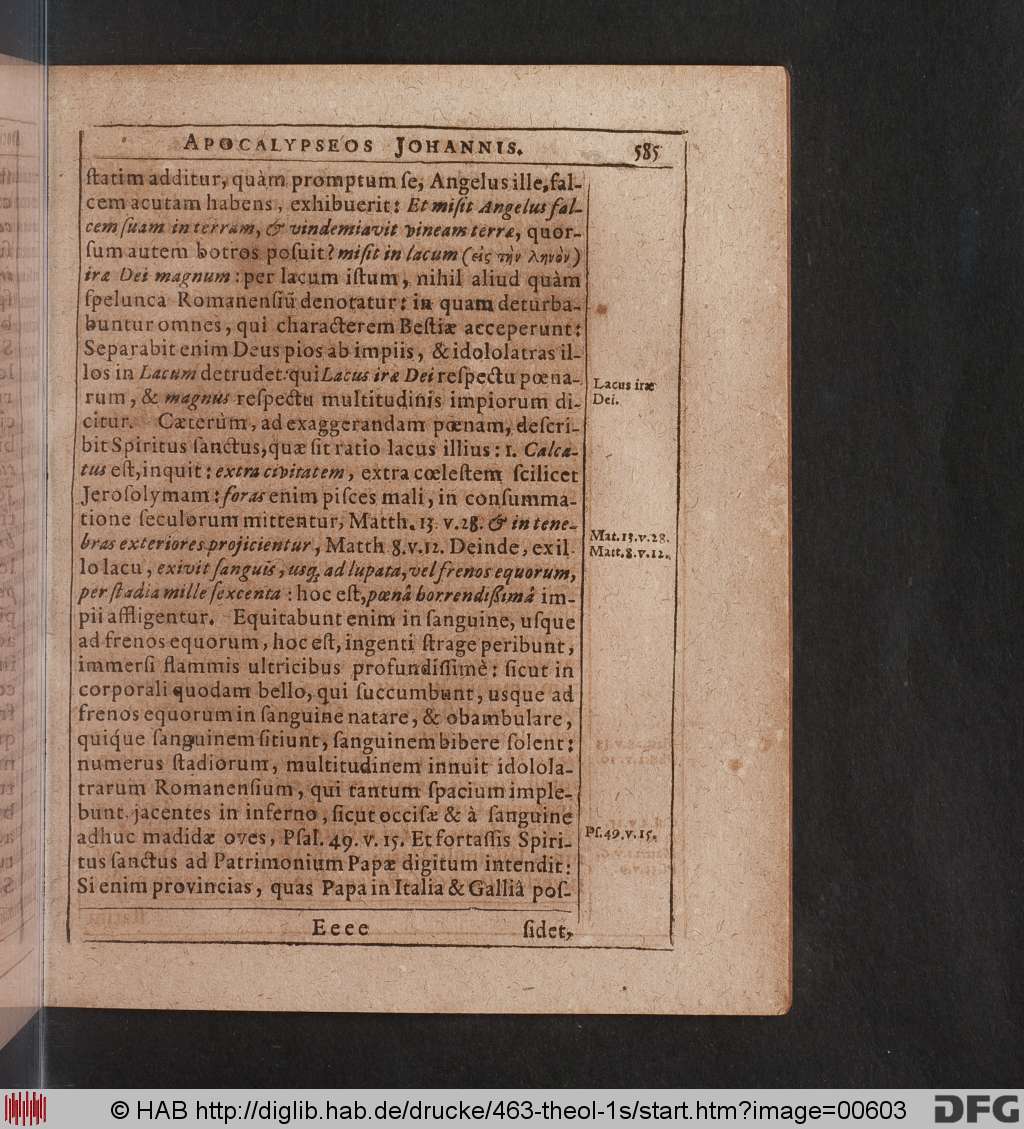 APOCALYPSEOS JOHANNIS. 585
ſtatim additur, quàm promptum ſe, Angelus ille, fal-
cem acutam habens, exhibuerit: Et miſit Angelus fal-
cem ſuam in terram, & vindemiavit vineam terræ, quor-
ſum autem botros poſuit? miſit in lacum (εἰς τὴν ληνὸν)
iræ Dei magnum: per lacum iſtum, nihil aliud quàm
ſpelunca Romanenſiū denotatur: in quam deturba-
buntur omnes, qui characterem Beſtiæ acceperunt:
Separabit enim Deus pios ab impiis, & idololatras il-
los in Lacum detrudet: qui Lacus iræ Dei reſpectu pœna-
rum, & magnus reſpectu multitudinis impiorum di-
citur. Cæterùm, ad exaggerandam pœnam, deſcri-
bit Spiritus ſanctus, quæ ſit ratio lacus illius: 1. Calca-
tus eſt, inquit: extra civitatem, extra cœleſtem ſcilicet
Jeroſolymam: foras enim piſces mali, in conſumma-
tione ſeculorum mittentur, Matth. 13. v. 28. & in tene-
bras exteriores projicientur, Matth 8. v. 12. Deinde, ex il
lo lacu, exivit ſanguis, usq; ad lupata, vel frenos equorum,
per ſtadia mille ſexcenta: hoc eſt, pœnâ horrendißimâ im-
pii affligentur. Equitabunt enim in ſanguine, uſque
ad frenos equorum, hoc eſt, ingenti ſtrage peribunt,
immerſi flammis ultricibus profundiſſimè: ſicut in
corporali quodam bello, qui ſuccumbunt, usque ad
frenos equorum in ſanguine natare, & obambulare,
quique ſanguinem ſitiunt, ſanguinem bibere ſolent:
numerus ſtadiorum, multitudinem innuit idolola-
trarum Romanenſium, qui tantum ſpacium imple-
bunt jacentes in inferno, ſicut occiſæ & à ſanguine
adhuc madidæ oves, Pſal. 49. v. 15. Et fortaſſis Spiri-
tus ſanctus ad Patrimonium Papæ digitum intendit:
Si enim provincias, quas Papa in Italia & Galliâ poſ-
Lacus iræ
Dei.
Mat. 13. v. 28.
Matt. 8. v. 12.
Pſ. 49. v. 15.
Eeee ſidet,
© HAB http://diglib.hab.de/drucke/463-theol-1s/start.htm?image=00603
DFG